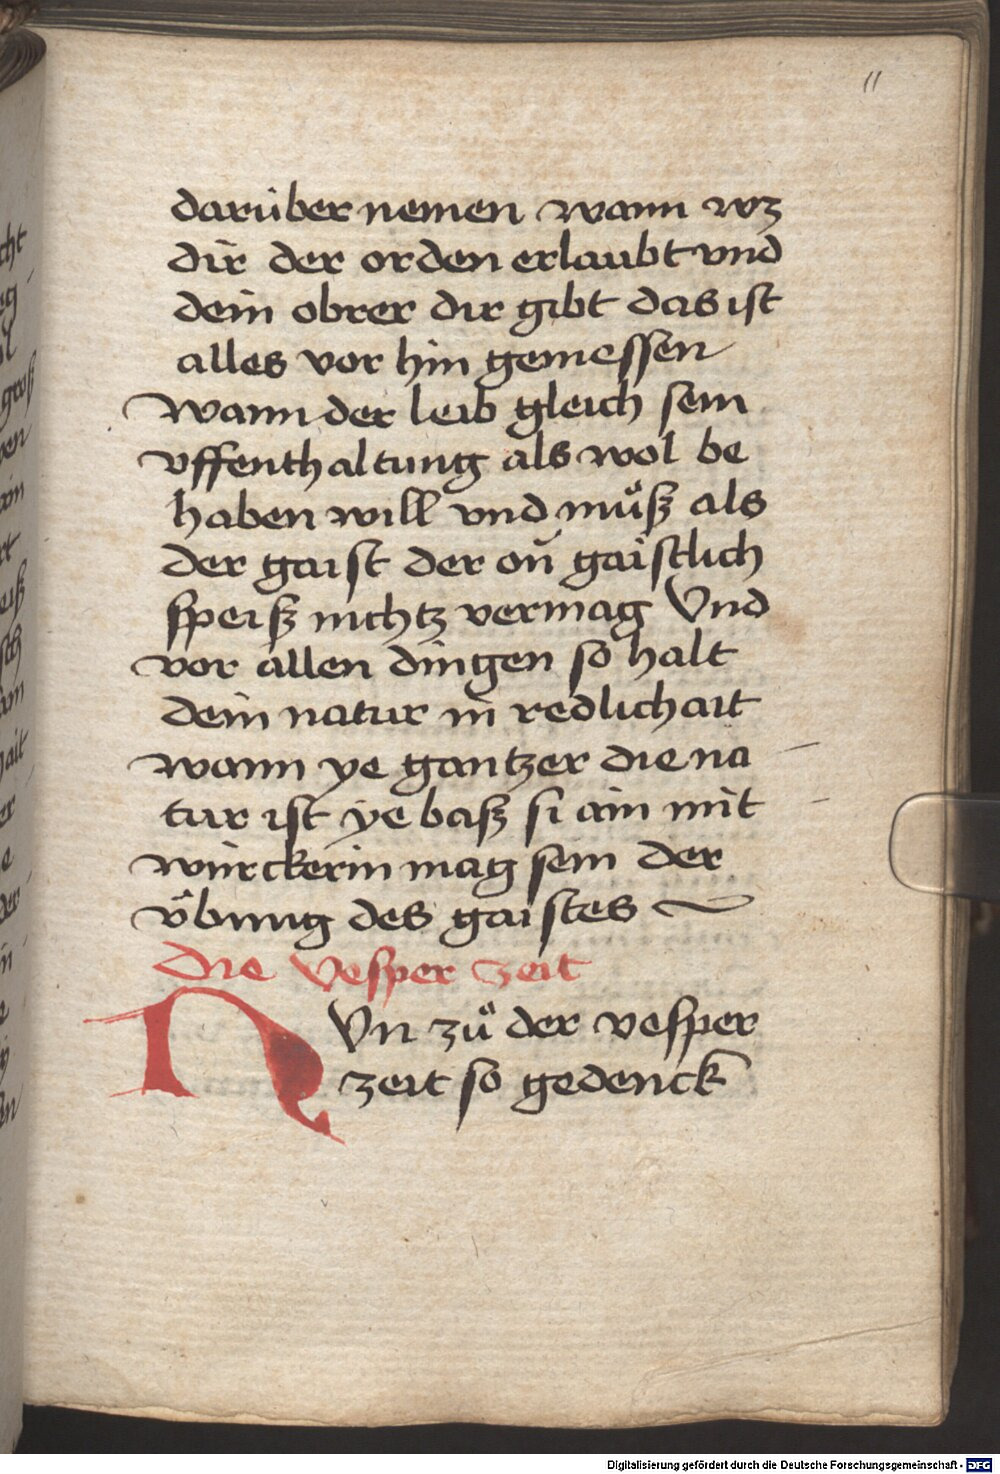 11
darüber nemen wann wz
dir der orden erlaubt vnd
dein obrer dir gibt das ist
alles vor hin gemessen
Wann der leib gleich sein
vffenthaltung als wol be
haben will vnd můß als
der gaist der on̄ gaistlich
speiß nichtz vermag Vnd
vor allen dingen so halt
dein natur in redlichait
wann ye gantzer die na
tur ist ye baß si ain mit
würckerin mag sein der
v̈bung des gaistes
Die Vesper zeit
NVn zů der vesper
zeit so gedenck
Digitalisierung gefördert durch die Deutsche Forschungsgemeinschaft - DFG